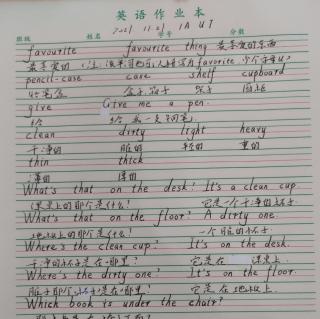 英语作业本
班级 姓名 学号 分数
2021 11.21 1A U7
favourite favourite thing 最喜爱的东西
最喜爱的
pencil-case case shelf cupboard
铅笔盒 盒子
give Give me a pen.
给 给我一支钢笔
clean dirty light heavy
干净的 脏的 轻的 重的
thin thick
薄的 厚的
What's that on the desk? It's a clean cup.
课桌上的那个是什么? 它是一个干净的杯子.
What's that on the floor? A dirty one.
地板上的那个是什么? 一个脏的杯子.
Where's the clean cup? It's on the desk.
干净的杯子是在哪里? 它是在 课桌上.
Where's the dirty one? It's on the floor.
脏子那个杯子是在哪里? 它是在地板上.
Which book is under the chair?